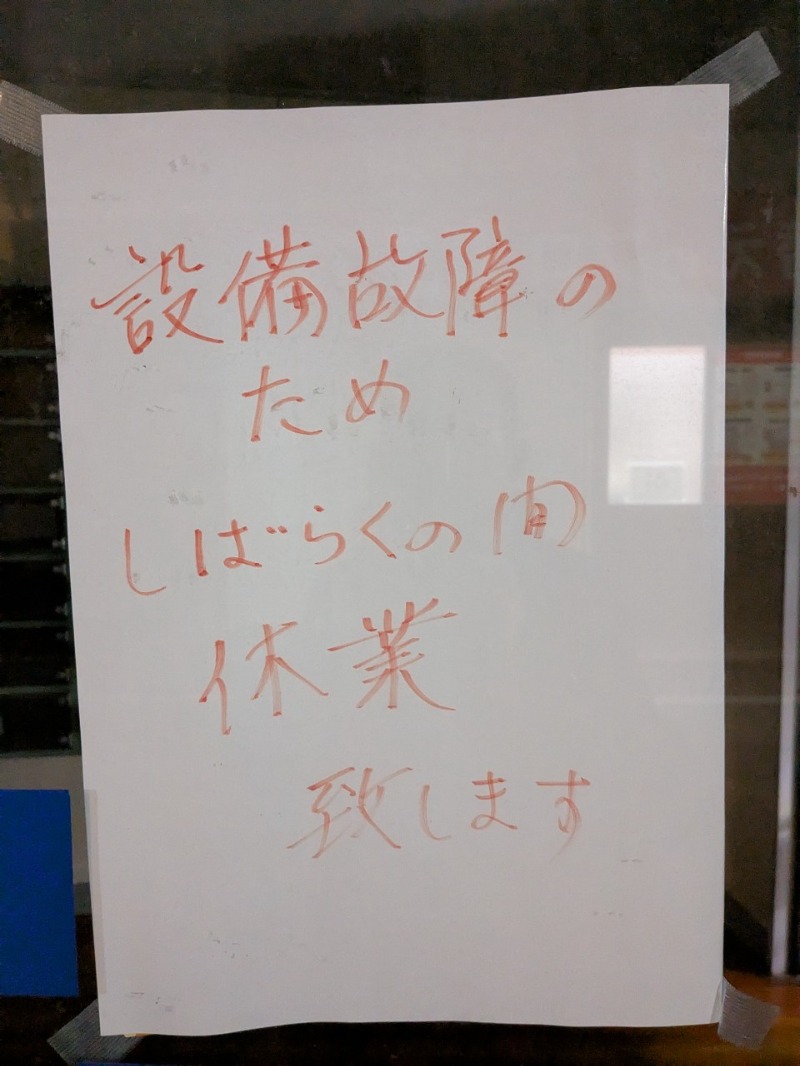 設備故障の
ため
しばらくの間
休業
致します